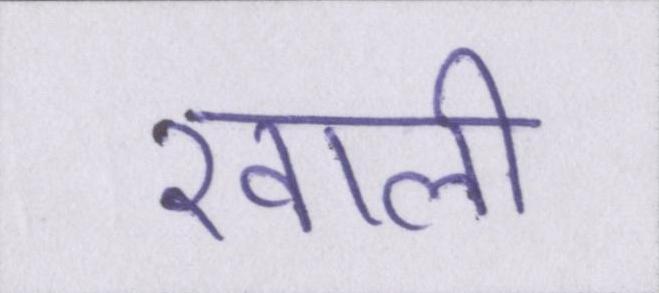 खाली